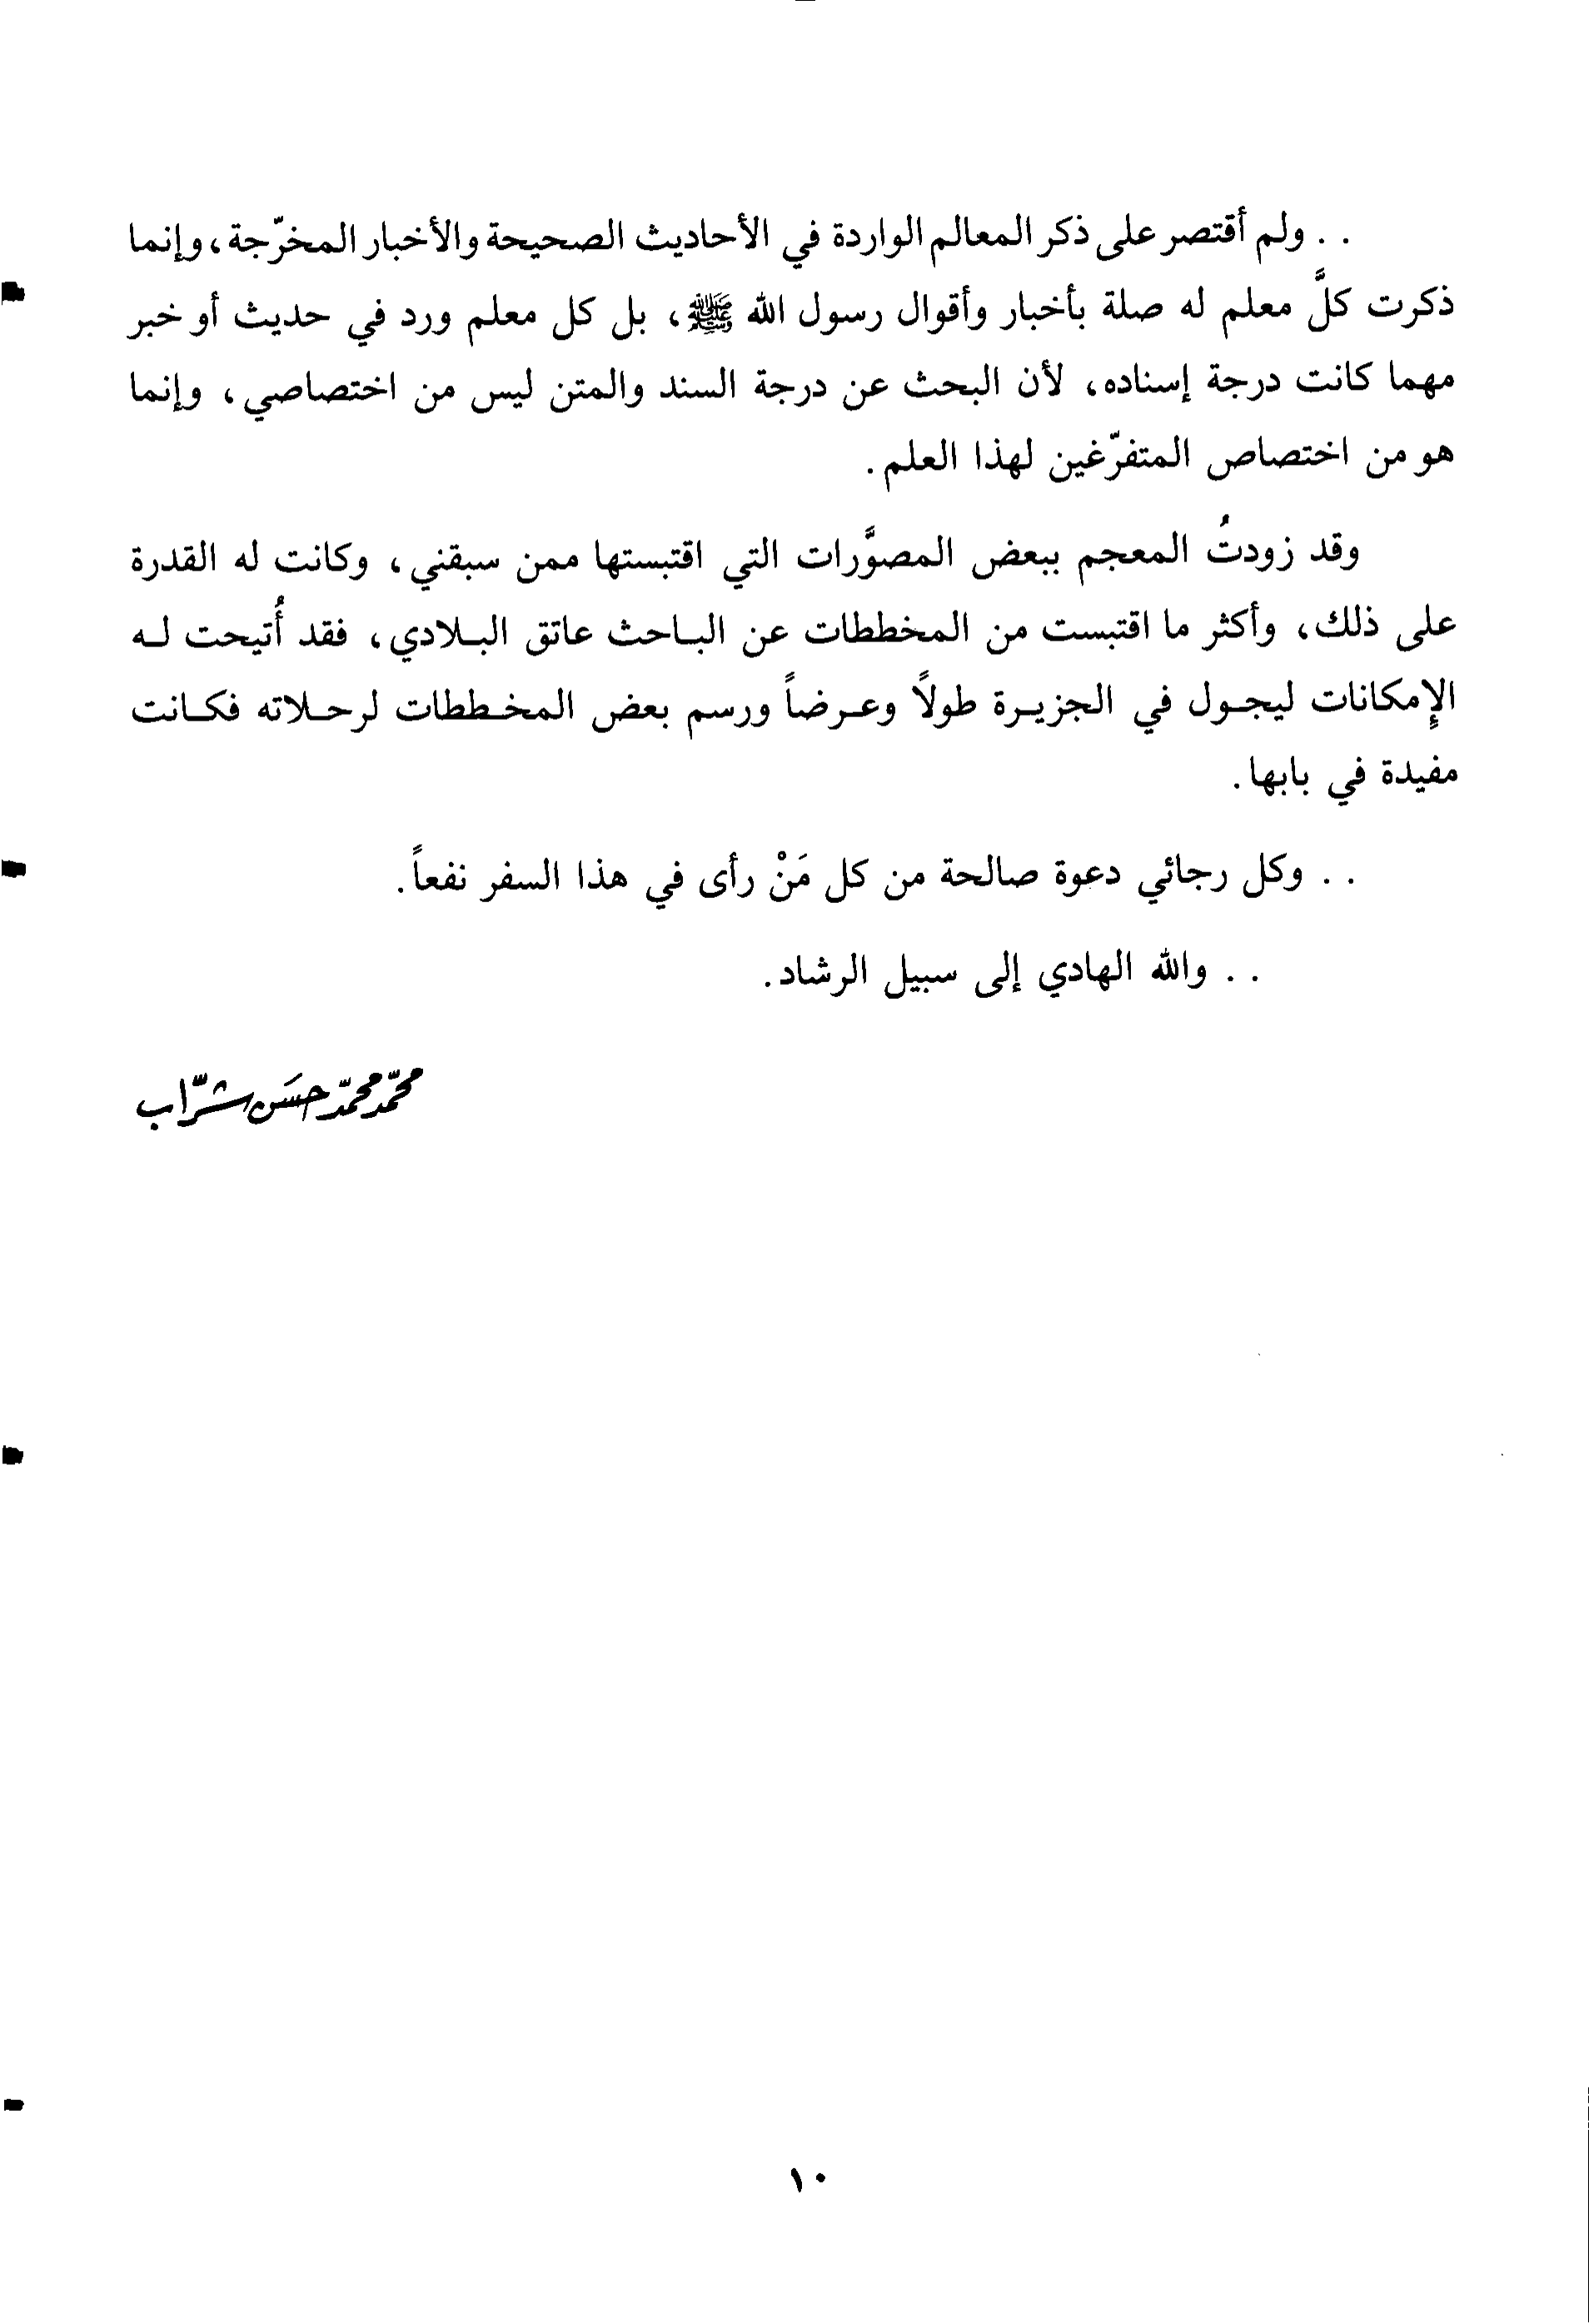 . . ولم أقتصر على ذكر المعالم الواردة في الأحاديث الصحيحة والأخبار المخرّجة، وإنما
ذكرت كلَّ معلم له صلة بأخبار وأقوال رسول الله ﷺ، بل كل معلم ورد في حديث أو خبر
مهما كانت درجة إسناده، لأن البحث عن درجة السند والمتن ليس من اختصاصي، وإنما
هو من اختصاص المتفرّغين لهذا العلم.
وقد زودتُ المعجم ببعض المصوَّرات التي اقتبستها ممن سبقني، وكانت له القدرة
على ذلك، وأكثر ما اقتبست من المخططات عن البـاحث عاتق البـلادي، فقد أُتيحت لـه
الإمكانات ليجـول في الجزيـرة طولاً وعـرضاً ورسم بعض المخـططات لرحـلاته فكـانت
مفيدة في بابها.
. . وكل رجائي دعوة صالحة من كل مَنْ رأى في هذا السفر نفعاً.
. . والله الهادي إلى سبيل الرشاد.
محمّد محمّد حسَن شرّاب
١٠